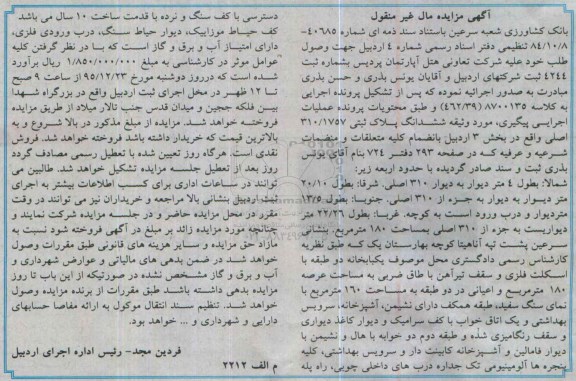 آگهی مزایده مال غیر منقول
بانک کشاورزی شعبه سرعین باستناد سند ذمه ای شماره ۴۰۶۸۵-
۸۴/۱۰/۸ تنظیمی دفتر اسناد رسمی شماره ۴ اردبیل جهت وصول
طلب خود علیه شرکت تعاونی هتل آپارتمان پردیس بشماره ثبت
۴۲۴۴ ثبت شرکتهای اردبیل و آقایان یونس بذری و حسن بذری
مبادرت به صدور اجرائیه نموده که پس از تشکیل پرونده اجرایی
به کلاسه ۸۷۰۰۱۳۵ (۴۶۲/۳۹) و طبق محتویات پرونده عملیات
اجرایی پیگیری، مورد وثیقه ششدانگ پلاک ثبتی ۳۱۰/۱۷۵۷
اصلی واقع در بخش ۳ اردبیل بانضمام کلیه متعلقات و منضمات
شرعیه و عرفیه که در صفحه ۲۹۳ دفتر ۷۲۴ بنام آقای یونس
بذری ثبت و سند صادر گردیده با حدود اربعه زیر:
شمالا: بطول ۴ متر دیوار به دیوار ۳۱۰ اصلی. شرقا: بطول ۲۰/۱۰
متر دیوار به دیوار به جزء از ۳۱۰ اصلی. جنوبا: بطول ۱۳/۵
متردیوار و درب ورود است به کوچه. غربا: بطول ۲۲/۲۶ متر
دیواریست به جزء از ۳۱۰ اصلی بمساحت ۱۸۰ مترمربع. بنشانی
سرعین پشت تپه آناهیتا کوچه بهارستان یک کـه طبق نظریه
کارشناس رسمی دادگستری محل موصوف یکبابخانه دو طبقه با
اسکلت فلزی و سقف تیرآهن با طاق ضربی به مساحت عرصه
۱۸۰ مترمربع و اعیانی در دو طبقه به مساحت ۱۶۰ مترمربع با
نمای سنگ سفید، طبقه همکف دارای نشیمن، آشپزخانه، سرویس
بهداشتی و یک اتاق خواب با کف سرامیک و دیوار کاغذ دیواری
و سقف رنگامیزی شده و طبقه دوم دو خوابه با هال و نشیمن با
دیوار فامالین و آشپزخانه کابینت دار و سرویس بهداشتی، کلیه
پنجره ها آلومینیومی تک جداره درب های داخلی چوبی، راه پله
دسترسی با کف سنگ و نرده با قدمت ساخت ۱۰ سال می باشد
کف حیاط موزاییک، دیوار حیاط سنگ، درب ورودی فلزی،
دارای امتیاز آب و برق و گاز است که بـا در نظر گرفتن کلیه
عوامل موثر در کارشناسی به مبلغ ۱/۸۵۰/۰۰۰/۰۰۰ ریال برآورد
شده است که درروز دوشنبه مورخ ۹۵/۱۲/۲۳ از ساعت ۹ صبح
تا ۱۲ ظهر در محل اجرای ثبت اردبیل واقع در بزرگراه شهدا
بین فلکه ججین و میدان قدس جنب تالار میلاد از طریق مزایده
فروخته خواهد شد. مزایده از مبلغ مذکور در بالا شروع و به
بالاترین قیمت که خریدار داشته باشد فروخته خواهد شد. فروش
نقدی است. هرگاه روز تعیین شده با تعطیل رسمی مصادف گردد
روز بعد از تعطیل جلسه مزایده تشکیل خواهد شد. طالبین می
توانند در ساعات اداری برای کسب اطلاعات بیشتر به اجرای
ثبت اردبیل بنشانی بالا مراجعه و خریداران نیز می توانند در وقت
مقرر در محل مزایده حاضر و در جلسه مزایده شرکت نمایند و
چنانچه مورد مزایده زائد بر مبلغ در آگهی فروخته شود نسبت به
مازاد حق مزایده و سایر هزینه های قانونی طبق مقررات وصول
خواهد شد در ضمن بدهی های مالیاتی و عوارض شهرداری و
آب و برق و گاز مشخص نشده در صورتیکه از این باب تا روز
مزایده بدهی داشته باشد طبق مقررات از برنده مزایده وصول
خواهد شد. تنظیم سند انتقال موکول به ارائه مفاصا حسابهای
دارایی و شهرداری و ... خواهد بود.
فردین مجد- رئیس اداره اجرای اردبیل
م الف ۲۲۱۲